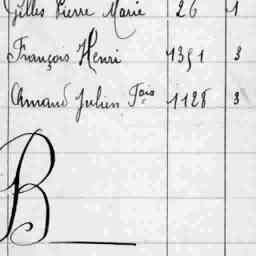 Gilles Pierre Marie 26 1
François Henri 1351 3
Amand Julien Fois 1128 3
B